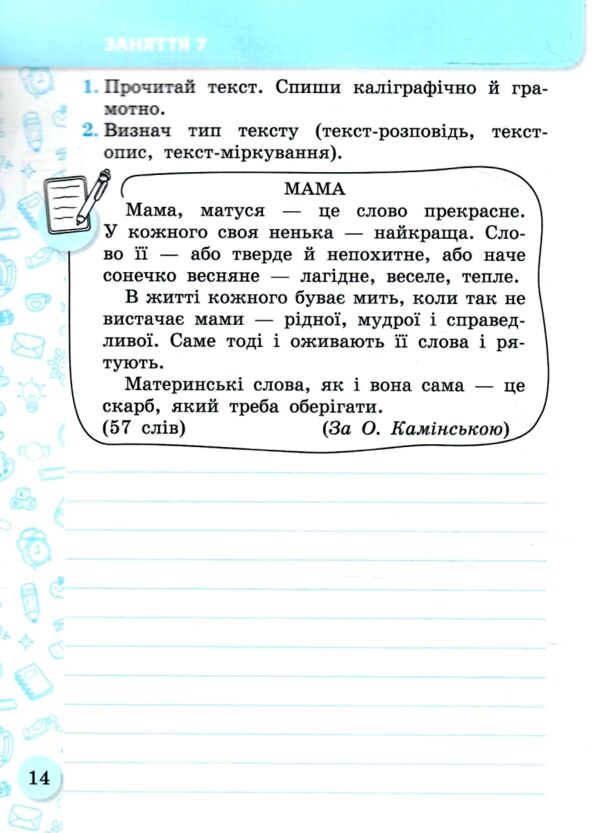 ЗАНЯТТЯ 7
1. Прочитай текст. Спиши каліграфічно й гра-
мотно.
2. Визнач тип тексту (текст-розповідь, текст-
опис, текст-міркування).
МАМА
Мама, матуся — це слово прекрасне.
У кожного своя ненька — найкраща. Сло-
во її — або тверде й непохитне, або наче
сонечко весняне — лагідне, веселе, тепле.
В житті кожного буває мить, коли так не
вистачає мами — рідної, мудрої і справед-
ливої. Саме тоді і оживають її слова і ря-
тують.
Материнські слова, як і вона сама — це
скарб, який треба оберігати.
(57 слів) (За О. Камінською)
14